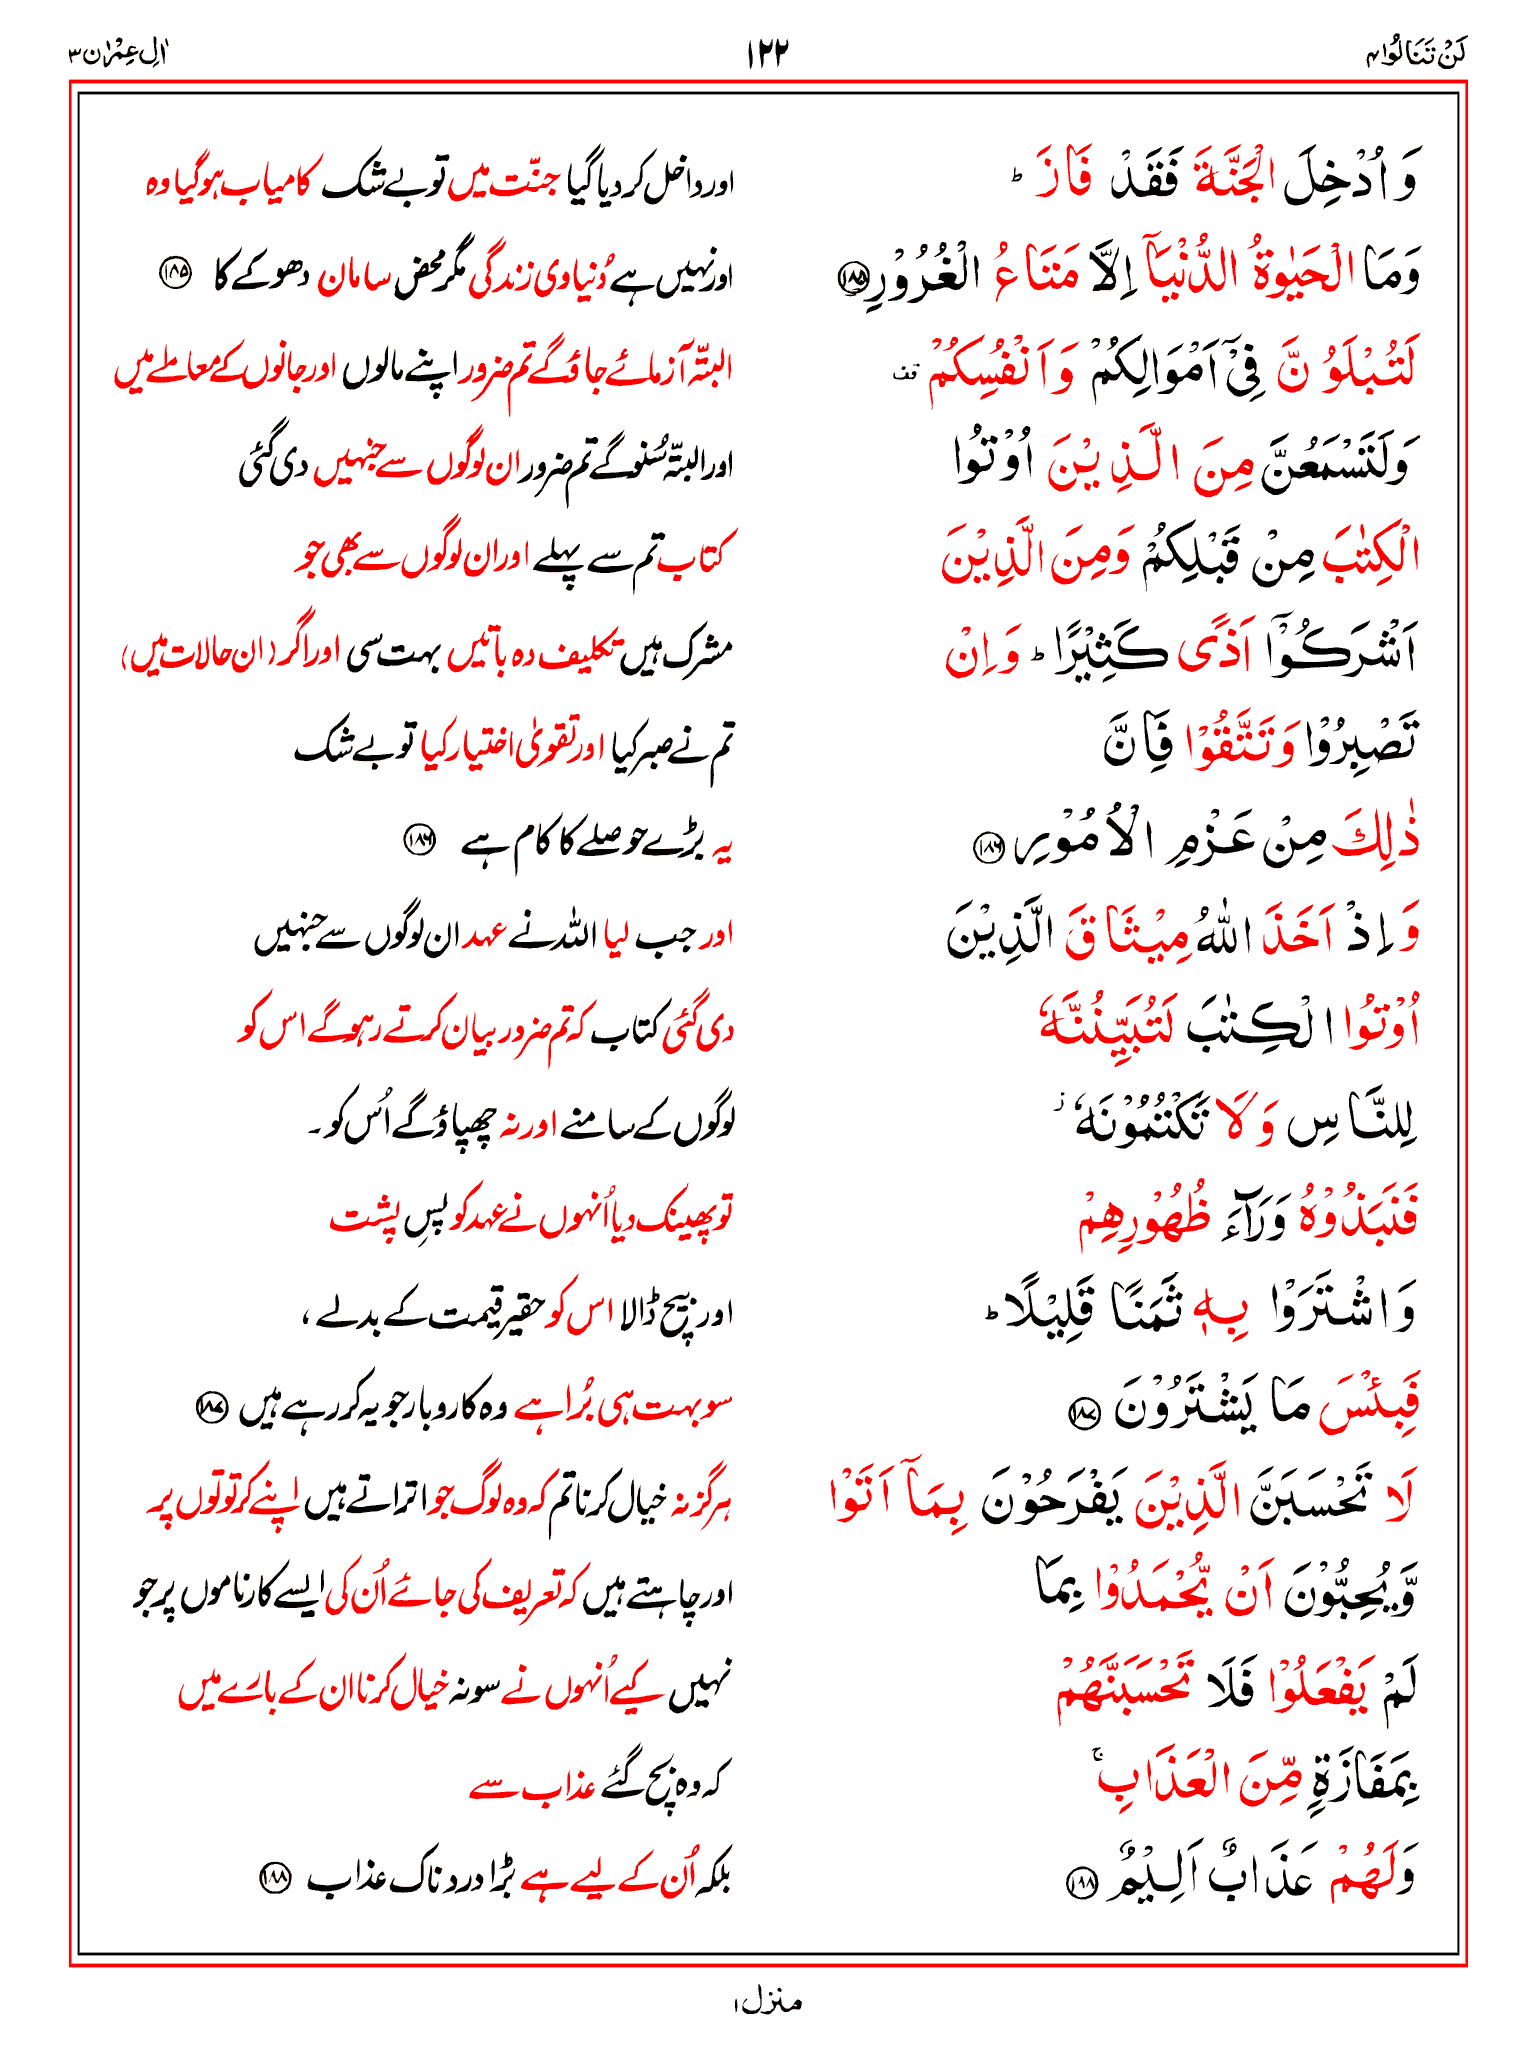 لَنْ تَنَالُوا ۴ ۱۲۲ اٰلِ عِمْرٰن ۳
وَ اُدْخِلَ الْجَنَّةَ فَقَدْ فَازَ ؕ اور داخل کر دیا گیا جنّت میں تو بے شک کامیاب ہوگیا وہ
وَمَا الْحَيٰوةُ الدُّنْيَاۤ اِلَّا مَتَاعُ الْغُرُوْرِ ﴿۱۸۵﴾ اور نہیں ہے دُنیاوی زندگی مگر محض سامان دھوکے کا ﴿۱۸۵﴾
لَتُبْلَوُنَّ فِيْۤ اَمْوَالِكُمْ وَ اَنْفُسِكُمْ ۫قف البتّہ آزمائے جاؤگے تم ضرور اپنے مالوں اور جانوں کے معاملے میں
وَلَتَسْمَعُنَّ مِنَ الَّذِيْنَ اُوْتُوا اور البتّہ سُنوگے تم ضرور ان لوگوں سے جنہیں دی گئی
الْكِتٰبَ مِنْ قَبْلِكُمْ وَمِنَ الَّذِيْنَ کتاب تم سے پہلے اور ان لوگوں سے بھی جو
اَشْرَكُوْۤا اَذًى كَثِيْرًا ؕ وَ اِنْ مشرک ہیں تکلیف دہ باتیں بہت سی اور اگر (ان حالات میں)
تَصْبِرُوْا وَتَتَّقُوْا فَاِنَّ تم نے صبر کیا اور تقویٰ اختیار کیا تو بے شک
ذٰلِكَ مِنْ عَزْمِ الْاُمُوْرِ ﴿۱۸۶﴾ یہ بڑے حوصلے کا کام ہے ﴿۱۸۶﴾
وَ اِذْ اَخَذَ اللّٰهُ مِيْثَاقَ الَّذِيْنَ اور جب لیا اللہ نے عہد ان لوگوں سے جنہیں
اُوْتُوا الْكِتٰبَ لَتُبَيِّنُنَّهٗ دی گئی کتاب کہ تم ضرور بیان کرتے رہوگے اس کو
لِلنَّاسِ وَلَا تَكْتُمُوْنَهٗ ؗ لوگوں کے سامنے اور نہ چھپاؤگے اُس کو۔
فَنَبَذُوْهُ وَرَآءَ ظُهُوْرِهِمْ تو پھینک دیا اُنہوں نے عہد کو پسِ پشت
وَ اشْتَرَوْا بِهٖ ثَمَنًا قَلِيْلًا ؕ اور بیچ ڈالا اس کو حقیر قیمت کے بدلے ،
فَبِئْسَ مَا يَشْتَرُوْنَ ﴿۱۸۷﴾ سو بہت ہی بُرا ہے وہ کاروبار جو یہ کر رہے ہیں ﴿۱۸۷﴾
لَا تَحْسَبَنَّ الَّذِيْنَ يَفْرَحُوْنَ بِمَاۤ اَتَوْا ہرگز نہ خیال کرنا تم کہ وہ لوگ جو اتراتے ہیں اپنے کرتوتوں پر
وَّيُحِبُّوْنَ اَنْ يُّحْمَدُوْا بِمَا اور چاہتے ہیں کہ تعریف کی جائے اُن کی ایسے کارناموں پر جو
لَمْ يَفْعَلُوْا فَلَا تَحْسَبَنَّهُمْ نہیں کیے اُنہوں نے سو نہ خیال کرنا ان کے بارے میں
بِمَفَازَةٍ مِّنَ الْعَذَابِ ۚ کہ وہ بچ گئے عذاب سے
وَلَهُمْ عَذَابٌ اَلِيْمٌ ﴿۱۸۸﴾ بلکہ اُن کے لیے ہے بڑا دردناک عذاب ﴿۱۸۸﴾
منزل ۱